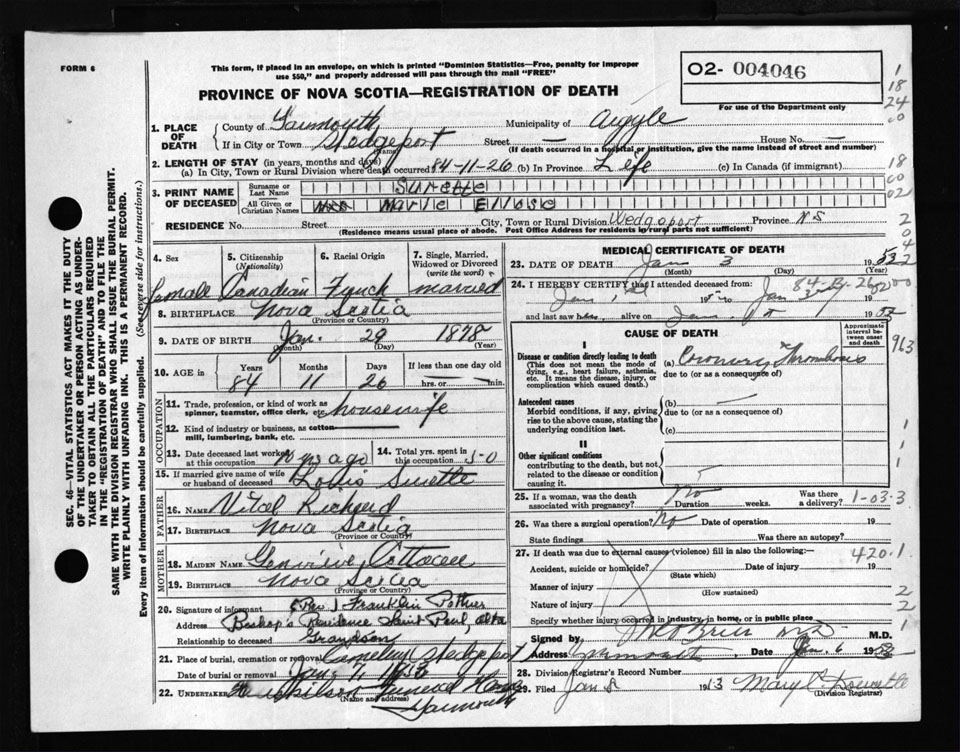 FORM 6
This form, if placed in an envelope, on which is printed "Dominion Statistics—Free, penalty for improper
use $50," and properly addressed will pass through the mail "FREE"
02- 004046
For use of the Department only
PROVINCE OF NOVA SCOTIA—REGISTRATION OF DEATH
1. PLACE OF DEATH
County of Yarmouth Municipality of Argyle
If in City or Town Wedgeport Street — House No. —
(Name) (If death occurred in a hospital or institution, give the name instead of street and number)
2. LENGTH OF STAY (in years, months and days)
(a) In City, Town or Rural Division where death occurred 84-11-26 (b) In Province Life (c) In Canada (if immigrant)
3. PRINT NAME OF DECEASED
Surname or Last Name Surette
All Given or Christian Names Marie
RESIDENCE No. Street City, Town or Rural Division Wedgeport Province N S
(Residence means usual place of abode. Post Office Address for residents in rural parts not sufficient)
4. Sex
Female
5. Citizenship (Nationality)
Canadian
6. Racial Origin
French
7. Single, Married, Widowed or Divorced (write the word)
married
8. BIRTHPLACE Nova Scotia
(Province or Country)
9. DATE OF BIRTH Jan. 29 1878
(Month) (Day) (Year)
10. AGE in Years Months Days If less than one day
84 11 26 — hrs. or — min.
OCCUPATION
11. Trade, profession, or kind of work as
spinner, teamster, office clerk, etc. housewife
12. Kind of industry or business, as cotton
mill, lumbering, bank, etc.
13. Date deceased last worked at this occupation ago
14. Total yrs. spent in this occupation 50
15. If married give name of wife
or husband of deceased Louis Surette
FATHER
16. NAME Vital Richard
17. BIRTHPLACE Nova Scotia
(Province or Country)
MOTHER
18. MAIDEN NAME
19. BIRTHPLACE Nova Scotia
(Province or Country)
20. Signature of informant Rev. J Franklin Pothier
Address Bishop's Residence Saint Paul, Alta
Relationship to deceased Grandson
21. Place of burial, cremation or removal Cemetery Wedgeport
Date of burial or removal Jan 7, 1953
22. UNDERTAKER Funeral Home
(Name and address) Yarmouth
MEDICAL CERTIFICATE OF DEATH
23. DATE OF DEATH Jan 3 1953
(Month) (Day) (Year)
24. I HEREBY CERTIFY that I attended deceased from:
Jan 1 19 to Jan 84-11-26
and last saw h alive on Jan 19
CAUSE OF DEATH
Approximate interval between onset and death
I
Disease or condition directly leading to death
(This does not mean the mode of dying, e.g., heart failure, asthenia, etc. It means the disease, injury, or complication which caused death.)
(a) Coronary Thrombosis
due to (or as a consequence of)
Antecedent causes
Morbid conditions, if any, giving rise to the above cause, stating the underlying condition last.
(b) —
due to (or as a consequence of)
(c)
II
Other significant conditions
contributing to the death, but not related to the disease or condition causing it.
25. If a woman, was the death associated with pregnancy? No Duration weeks. Was there a delivery?
1-03-3
26. Was there a surgical operation? No Date of operation 19
State findings Was there an autopsy?
27. If death was due to external causes (violence) fill in also the following:—
420.1
Accident, suicide or homicide? Date of injury 19
(State which)
Manner of injury
(How sustained)
Nature of injury
Specify whether injury occurred in industry, in home, or in public place
Signed by M.D.
Address Yarmouth Date Jan. 6 1953
28. Division Registrar's Record Number
29. Filed Jan 8 1953 Mary C Doucette
(Division Registrar)
SEC. 46—VITAL STATISTICS ACT MAKES IT THE DUTY
OF THE UNDERTAKER OR PERSON ACTING AS UNDER-
TAKER TO OBTAIN ALL THE PARTICULARS REQUIRED
IN THE "REGISTRATION OF DEATH" AND TO FILE THE
SAME WITH THE DIVISION REGISTRAR WHO SHALL ISSUE THE BURIAL PERMIT.
WRITE PLAINLY WITH UNFADING INK. THIS IS A PERMANENT RECORD.
Every item of information should be carefully supplied. (See reverse side for instructions.)
1
18
24
0
18
00
02
2
0
4
2
963
1
1
1
2
2
1